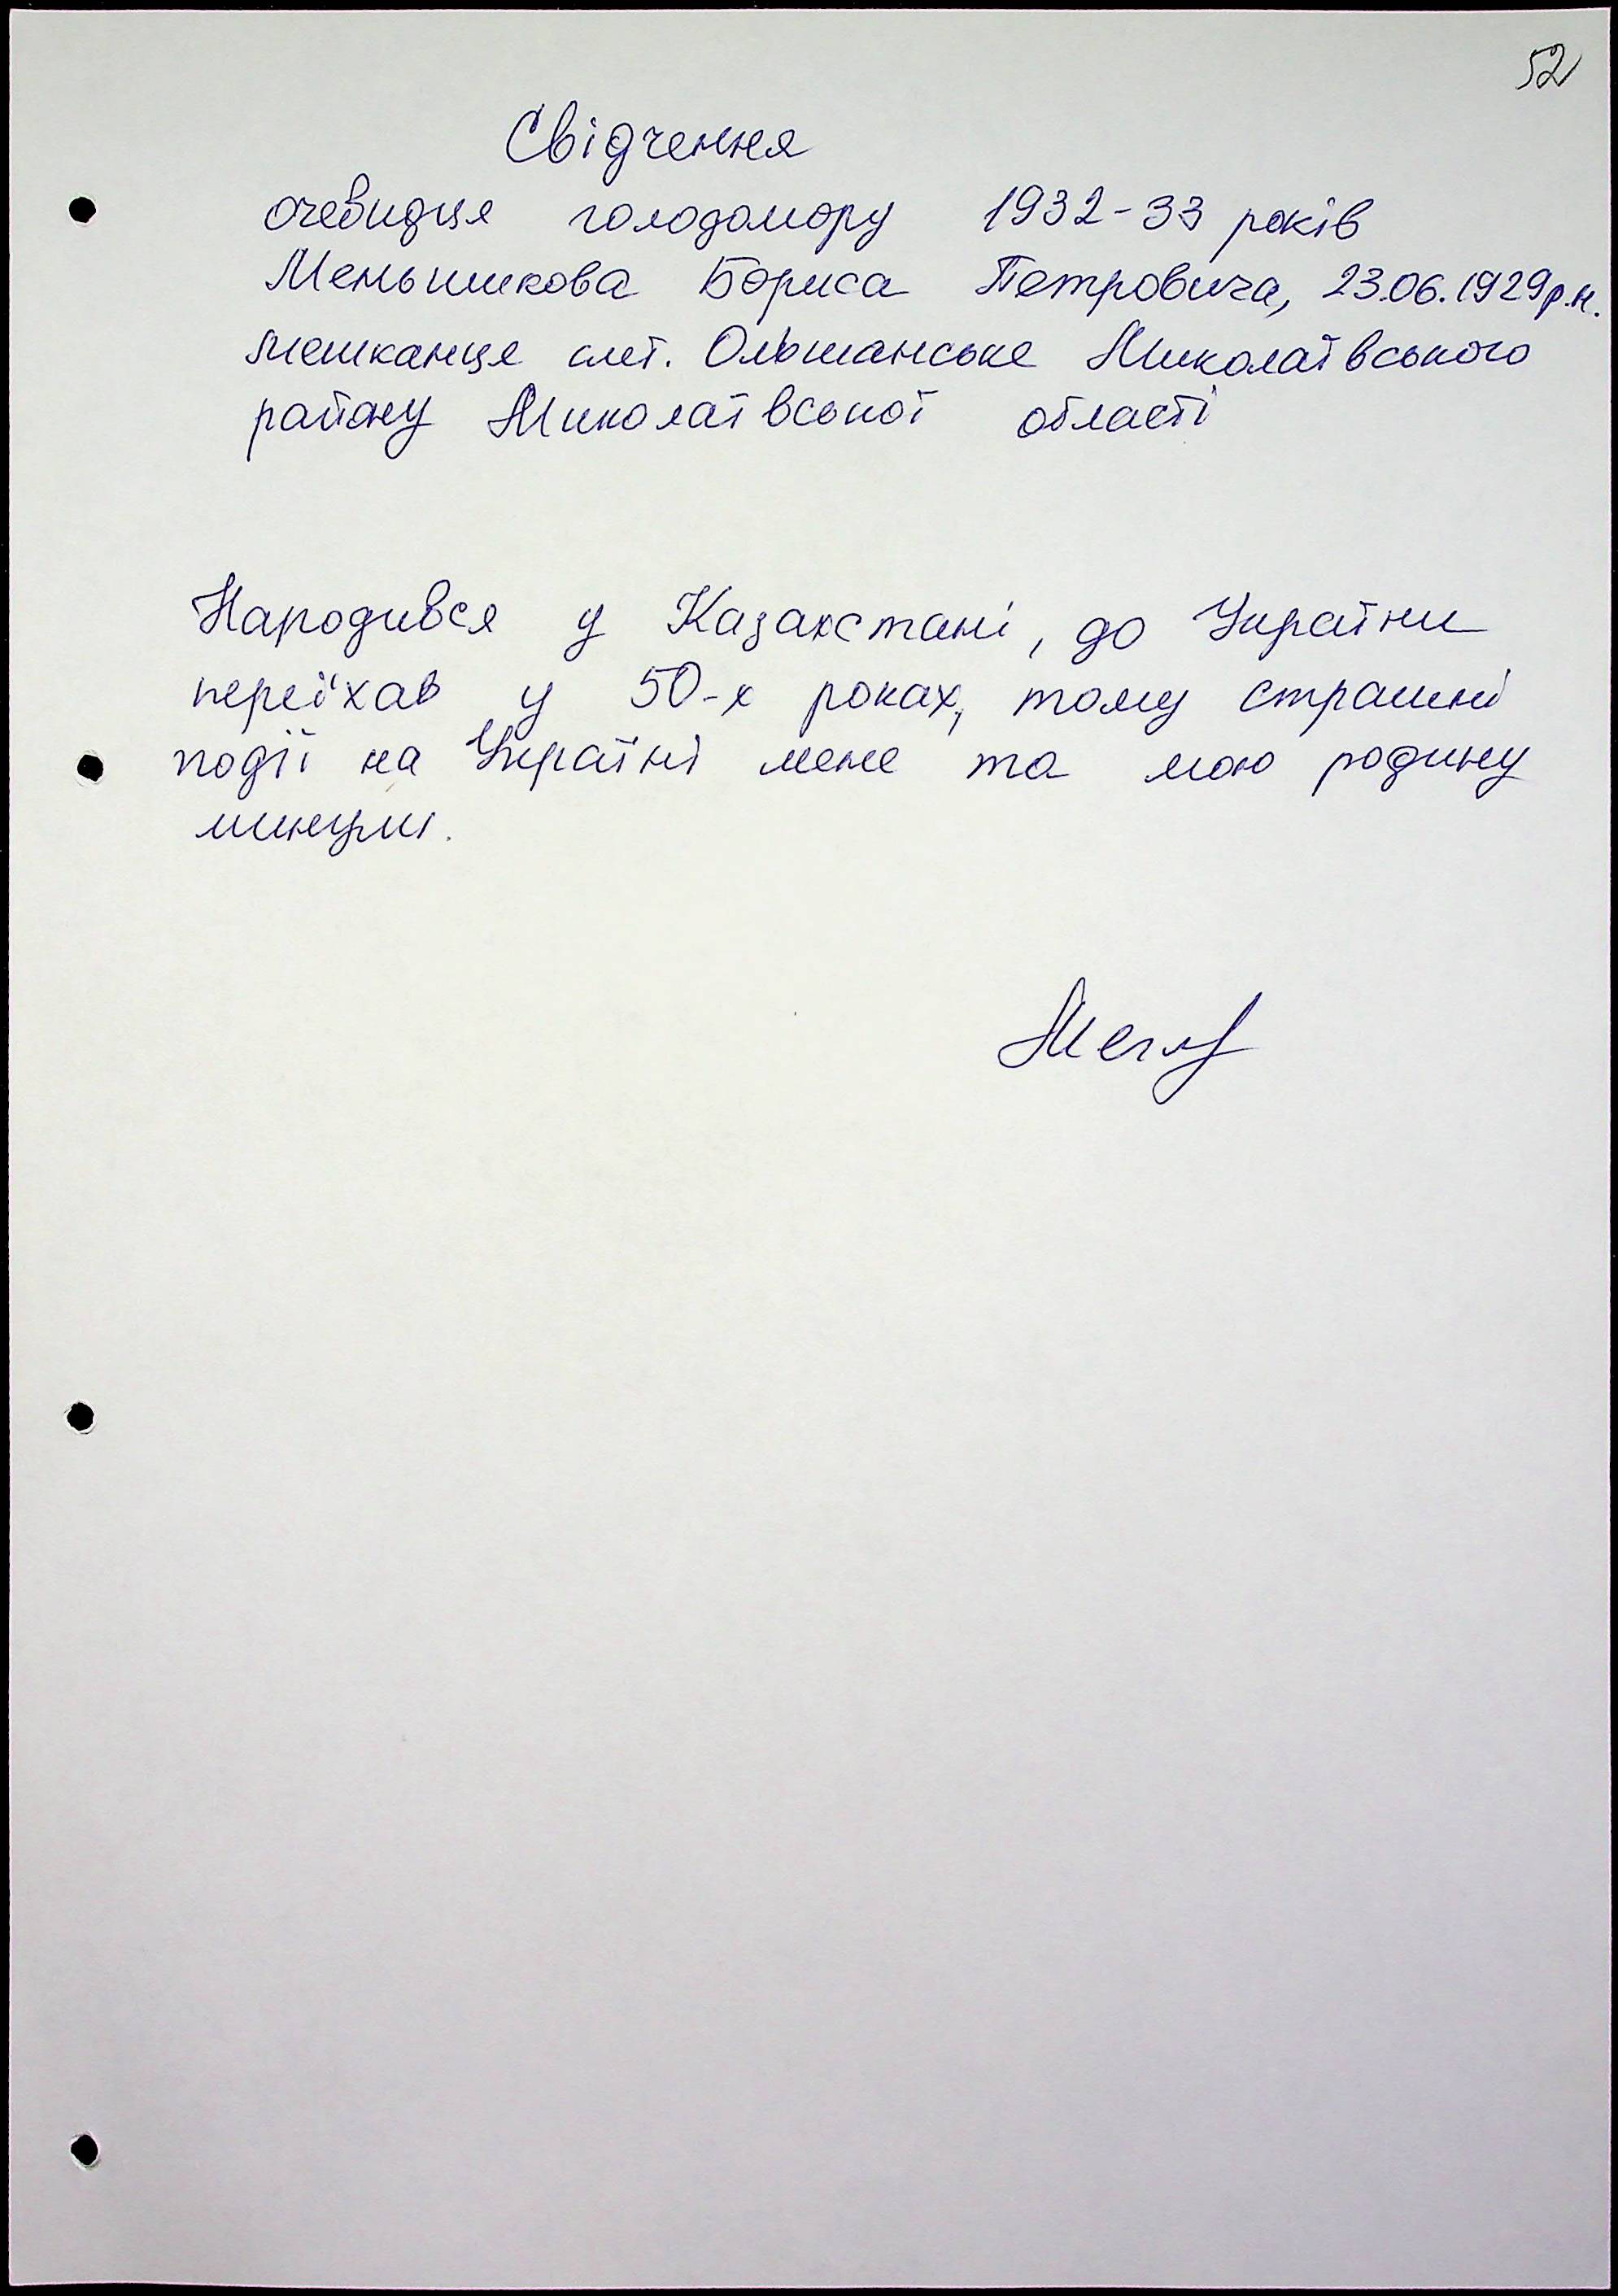 52
Свідчення
очевидця голодомору 1932-33 років
Меньшикова Бориса Петровича, 23.06.1929р.н.
мешканця смт. Ольшанське Миколаївського
району Миколаївської області
Народився у Казахстані, до України
переїхав у 50-х роках, тому страшні
події на Україні мене та мою родину
минули.